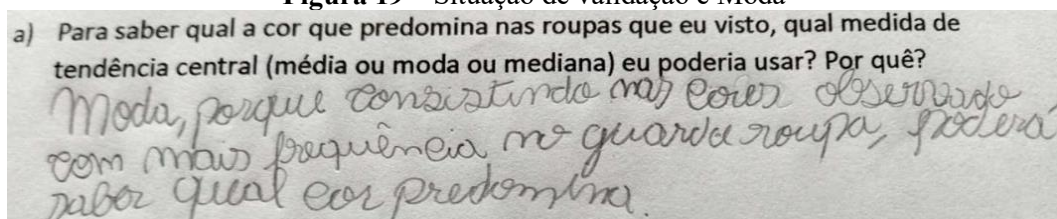 Figura 19 – Situação de validação e Moda
a) Para saber qual a cor que predomina nas roupas que eu visto, qual medida de
tendência central (média ou moda ou mediana) eu poderia usar? Por quê?
Moda, porque consistindo nas cores observado
com mais frequência no guarda roupa, poderá
saber qual cor predomina.